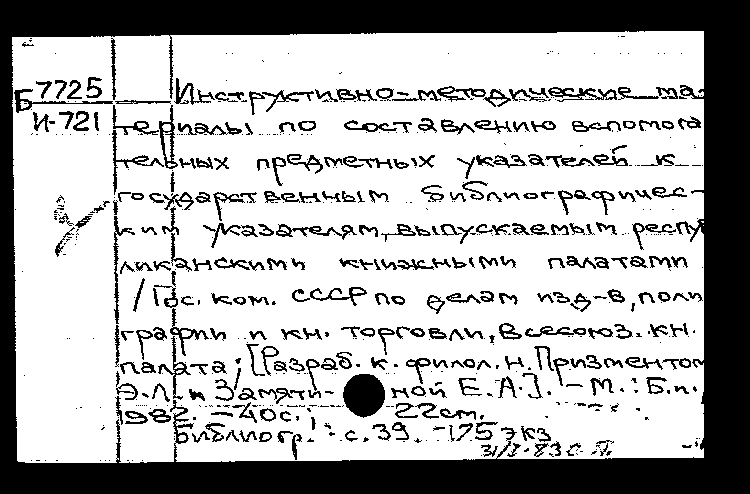 Б 7725
И-721
Инструктивно-методические ма-
териалы по составлению вспомога
тельных предметных указателей к
государственным библиографичес-
ким указателям, выпускаемым респуб
ликанскими книжными палатами
/ Гос. ком. СССР по делам изд-в, поли
графии и кн. торговли, Всесоюз. кн.
палата; [Разраб. к. филол. н. Призментом
Э.Л. и Замяти- ной Е.А.]. - М.: Б.и.,
1982. - 40с.; 22см.
Библиогр.: с.39. -175 экз